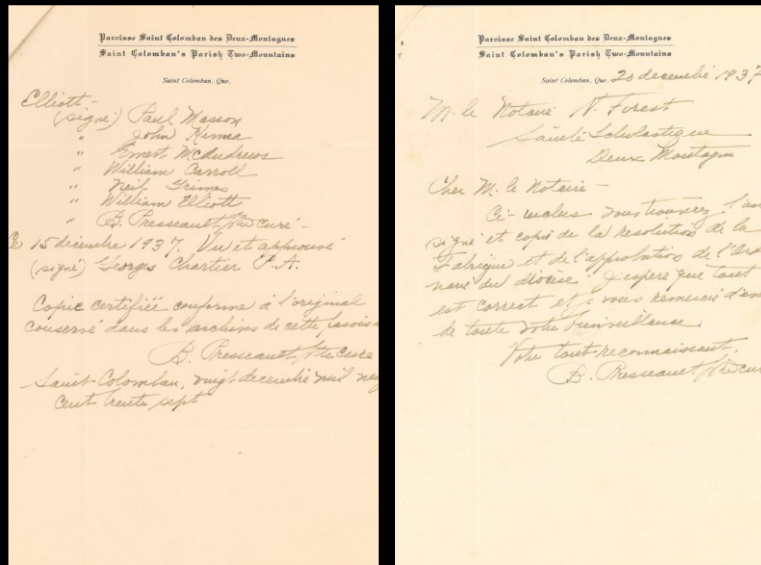 Paroisse Saint Colomban des Deux-Montagnes
Saint Colomban's Parish Two-Mountains
Saint Colomban, Que.
Elliott -
(signé) Paul Masson
" John Hanna
" Ernest McAndrews
" William Carroll
" Neil Grimes
" William Elliott
" B. Presseault, Ptre Curé -
15 décembre 1937. Vu et approuvé
(signé) Georges Chartier P.A.
Copie certifiée conforme à l'original
conservé dans les archives de cette
B. Presseault, Ptre Curé
Saint-Colomban, vingt decembre mil
cent trente sept
Paroisse Saint Colomban des Deux-Montagnes
Saint Colomban's Parish Two-Mountains
Saint Colomban, Que. 20 decembre 1937
M. le Notaire N. Forest
Sainte Scholastique
Deux Montagnes
Cher M. le Notaire -
Ci-inclus vous trouverez
signé et copie de la resolution de la
Fabrique et de l'approbation de
du diocèse. J'espère que tout
est correct et je vous remercie
de toute votre bienveillance.
Votre tout reconnaissant,
B. Presseault, Ptre